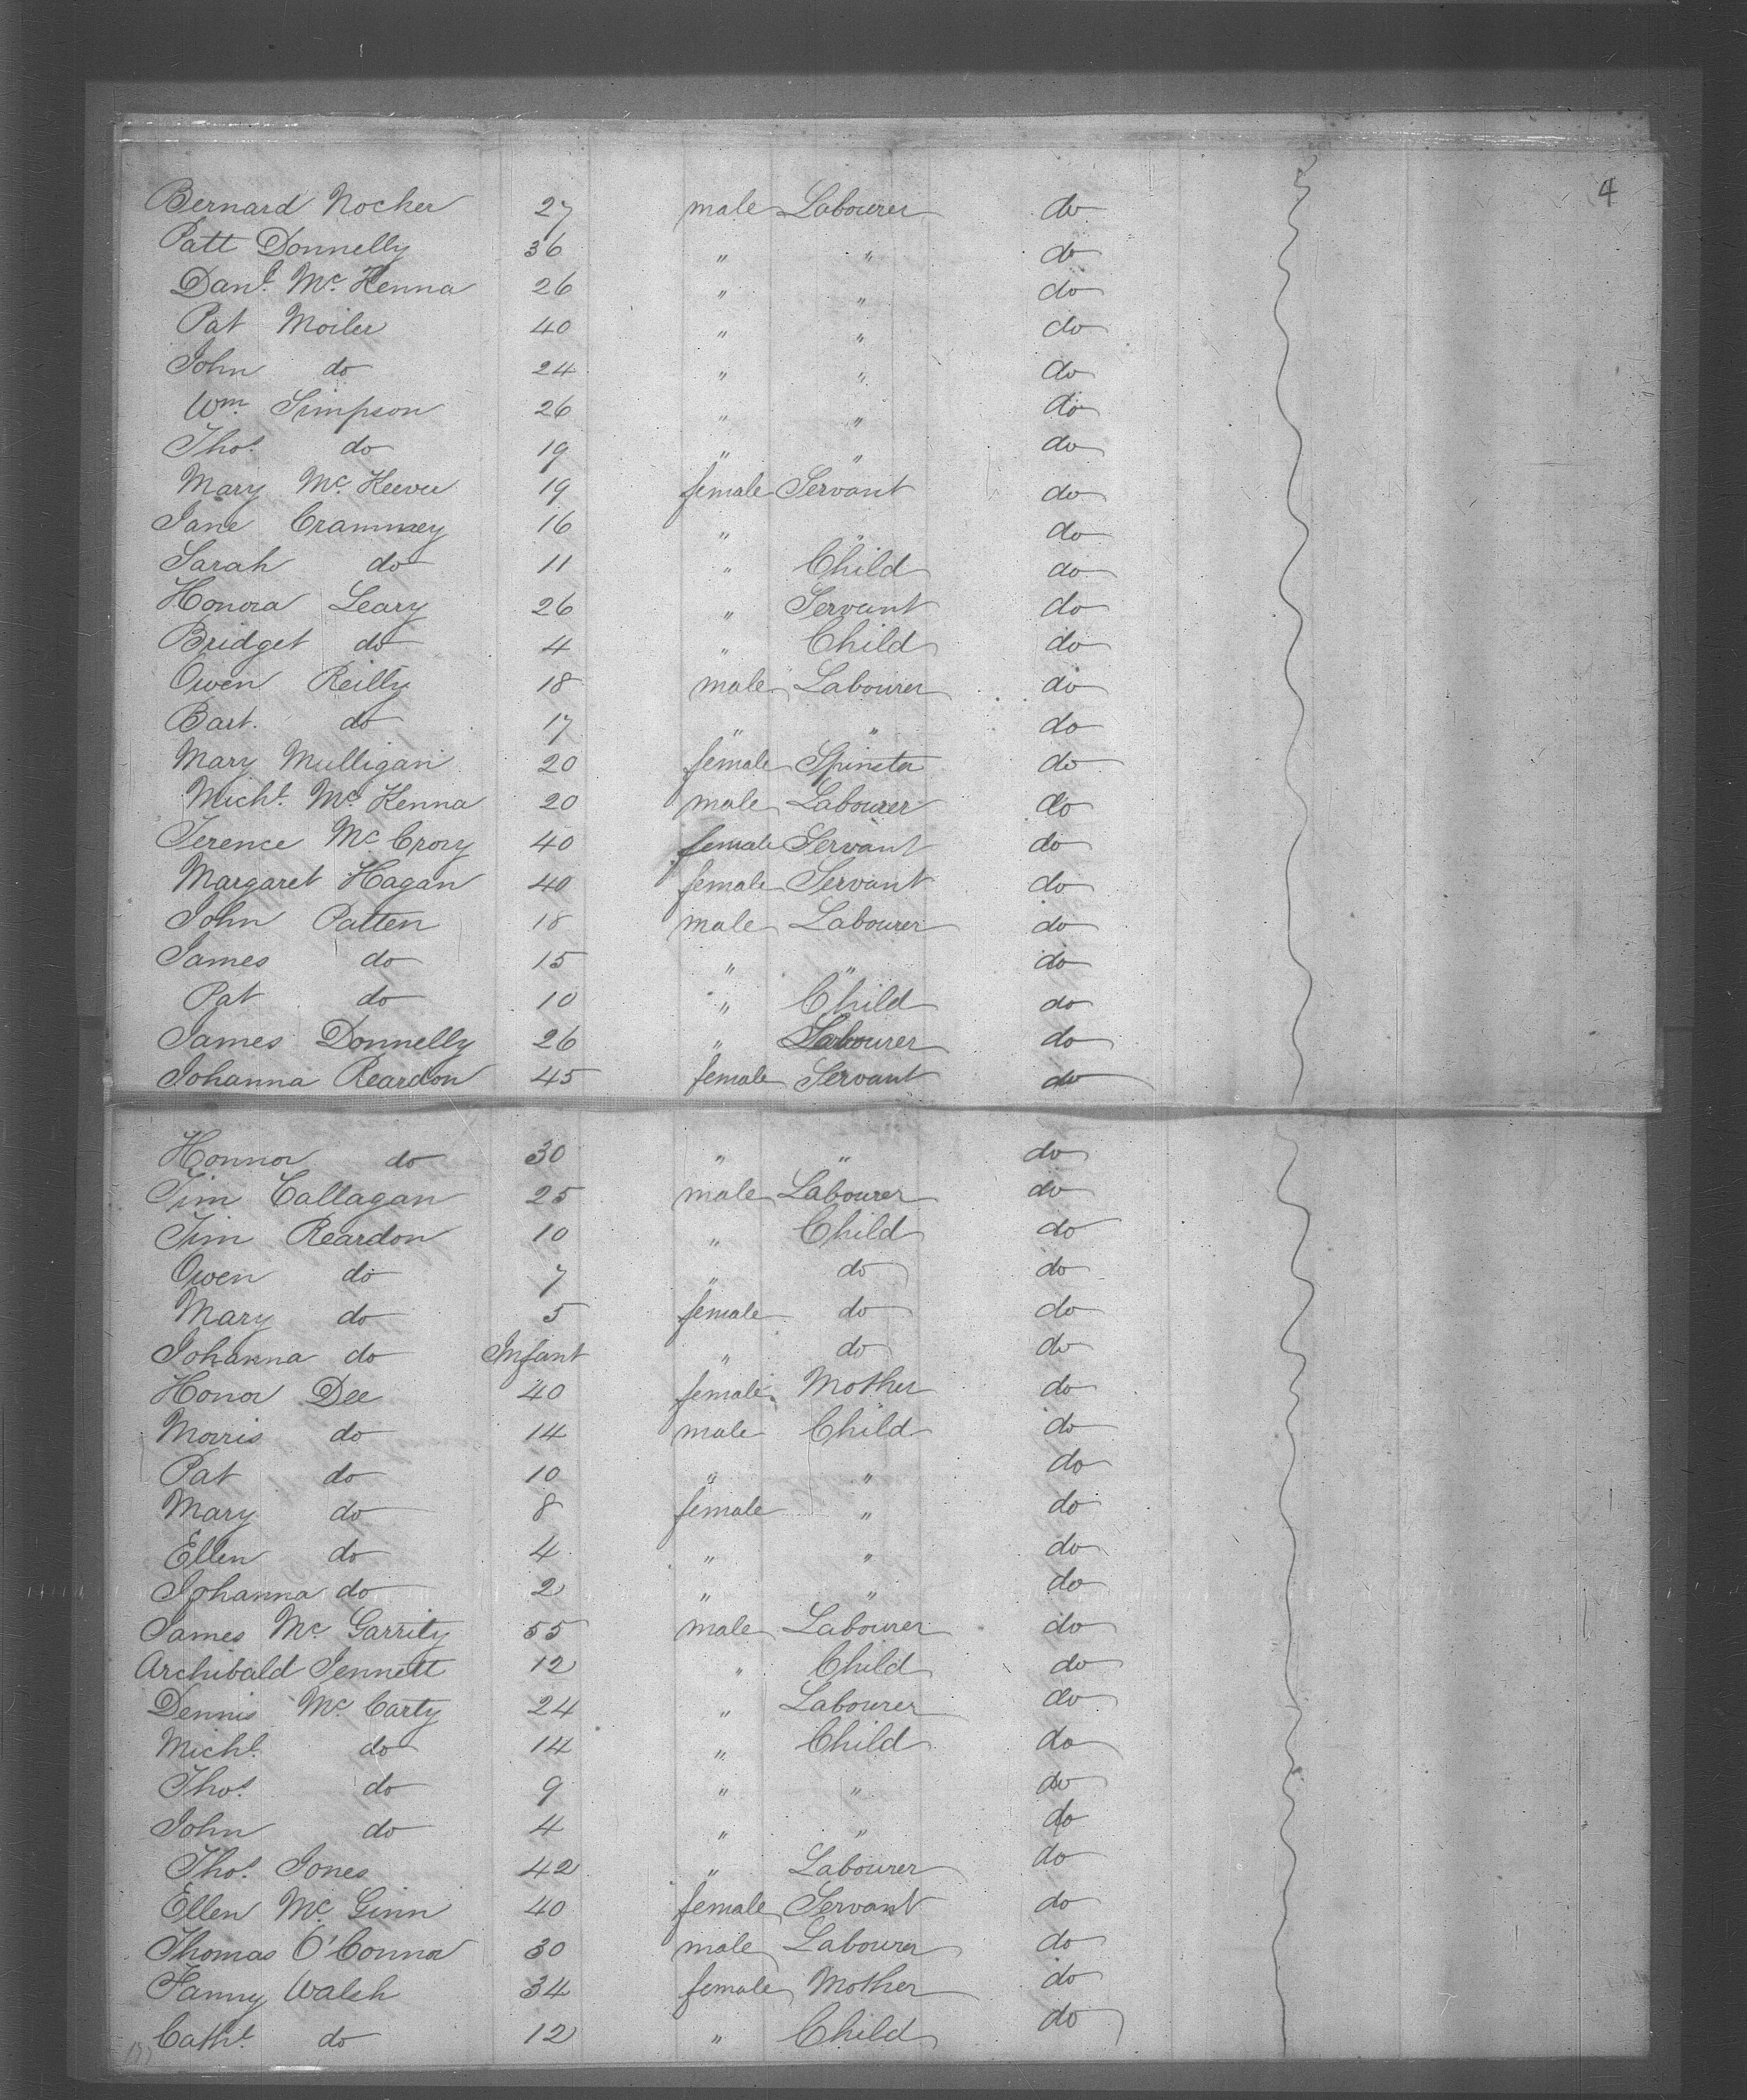 4
Bernard Nocher 27 male Labourer do
Patt Donnelly 36 " " do
Danl. Mc. Kenna 26 " " do
Pat Moiler 40 " " do
John do 24 " " do
Wm. Simpson 26 " " do
Thos. do 19 " " do
Mary Mc. Keever 19 female Servant do
Jane Crammey 16 " " do
Sarah do 11 " Child do
Honora Leary 26 " Servant do
Bridget do 4 " Child do
Owen Reilly 18 male Labourer do
Bart. do 17 " " do
Mary Mulligan 20 female Spinster do
Michl. Mc. Kenna 20 male Labourer do
Terence Mc Crory 40 female Servant do
Margaret Hagan 40 female Servant do
John Patten 18 male Labourer do
James do 15 " " do
Pat do 10 " Child do
James Donnelly 26 " Labourer do
Johanna Reardon 45 female Servant do
Honnor do 30 " " do
Tim Callagan 25 male Labourer do
Tim Reardon 10 " Child do
Owen do 7 " do do
Mary do 5 female do do
Johanna do Infant " do do
Honor Dee 40 female Mother do
Morris do 14 male Child do
Pat do 10 " " do
Mary do 8 female " do
Ellen do 4 " " do
Johanna do 2 " " do
James Mc. Garrity 55 male Labourer do
Archibald Jennett 12 " Child do
Dennis Mc. Carty 24 " Labourer do
Michl. do 14 " Child do
Thos. do 9 " " do
John do 4 " " do
Thos. Jones 42 " Labourer do
Ellen Mc. Ginn 40 female Servant do
Thomas O'Connor 30 male Labourer do
Fanny Walsh 34 female Mother do
Cathe. do 12 " Child do